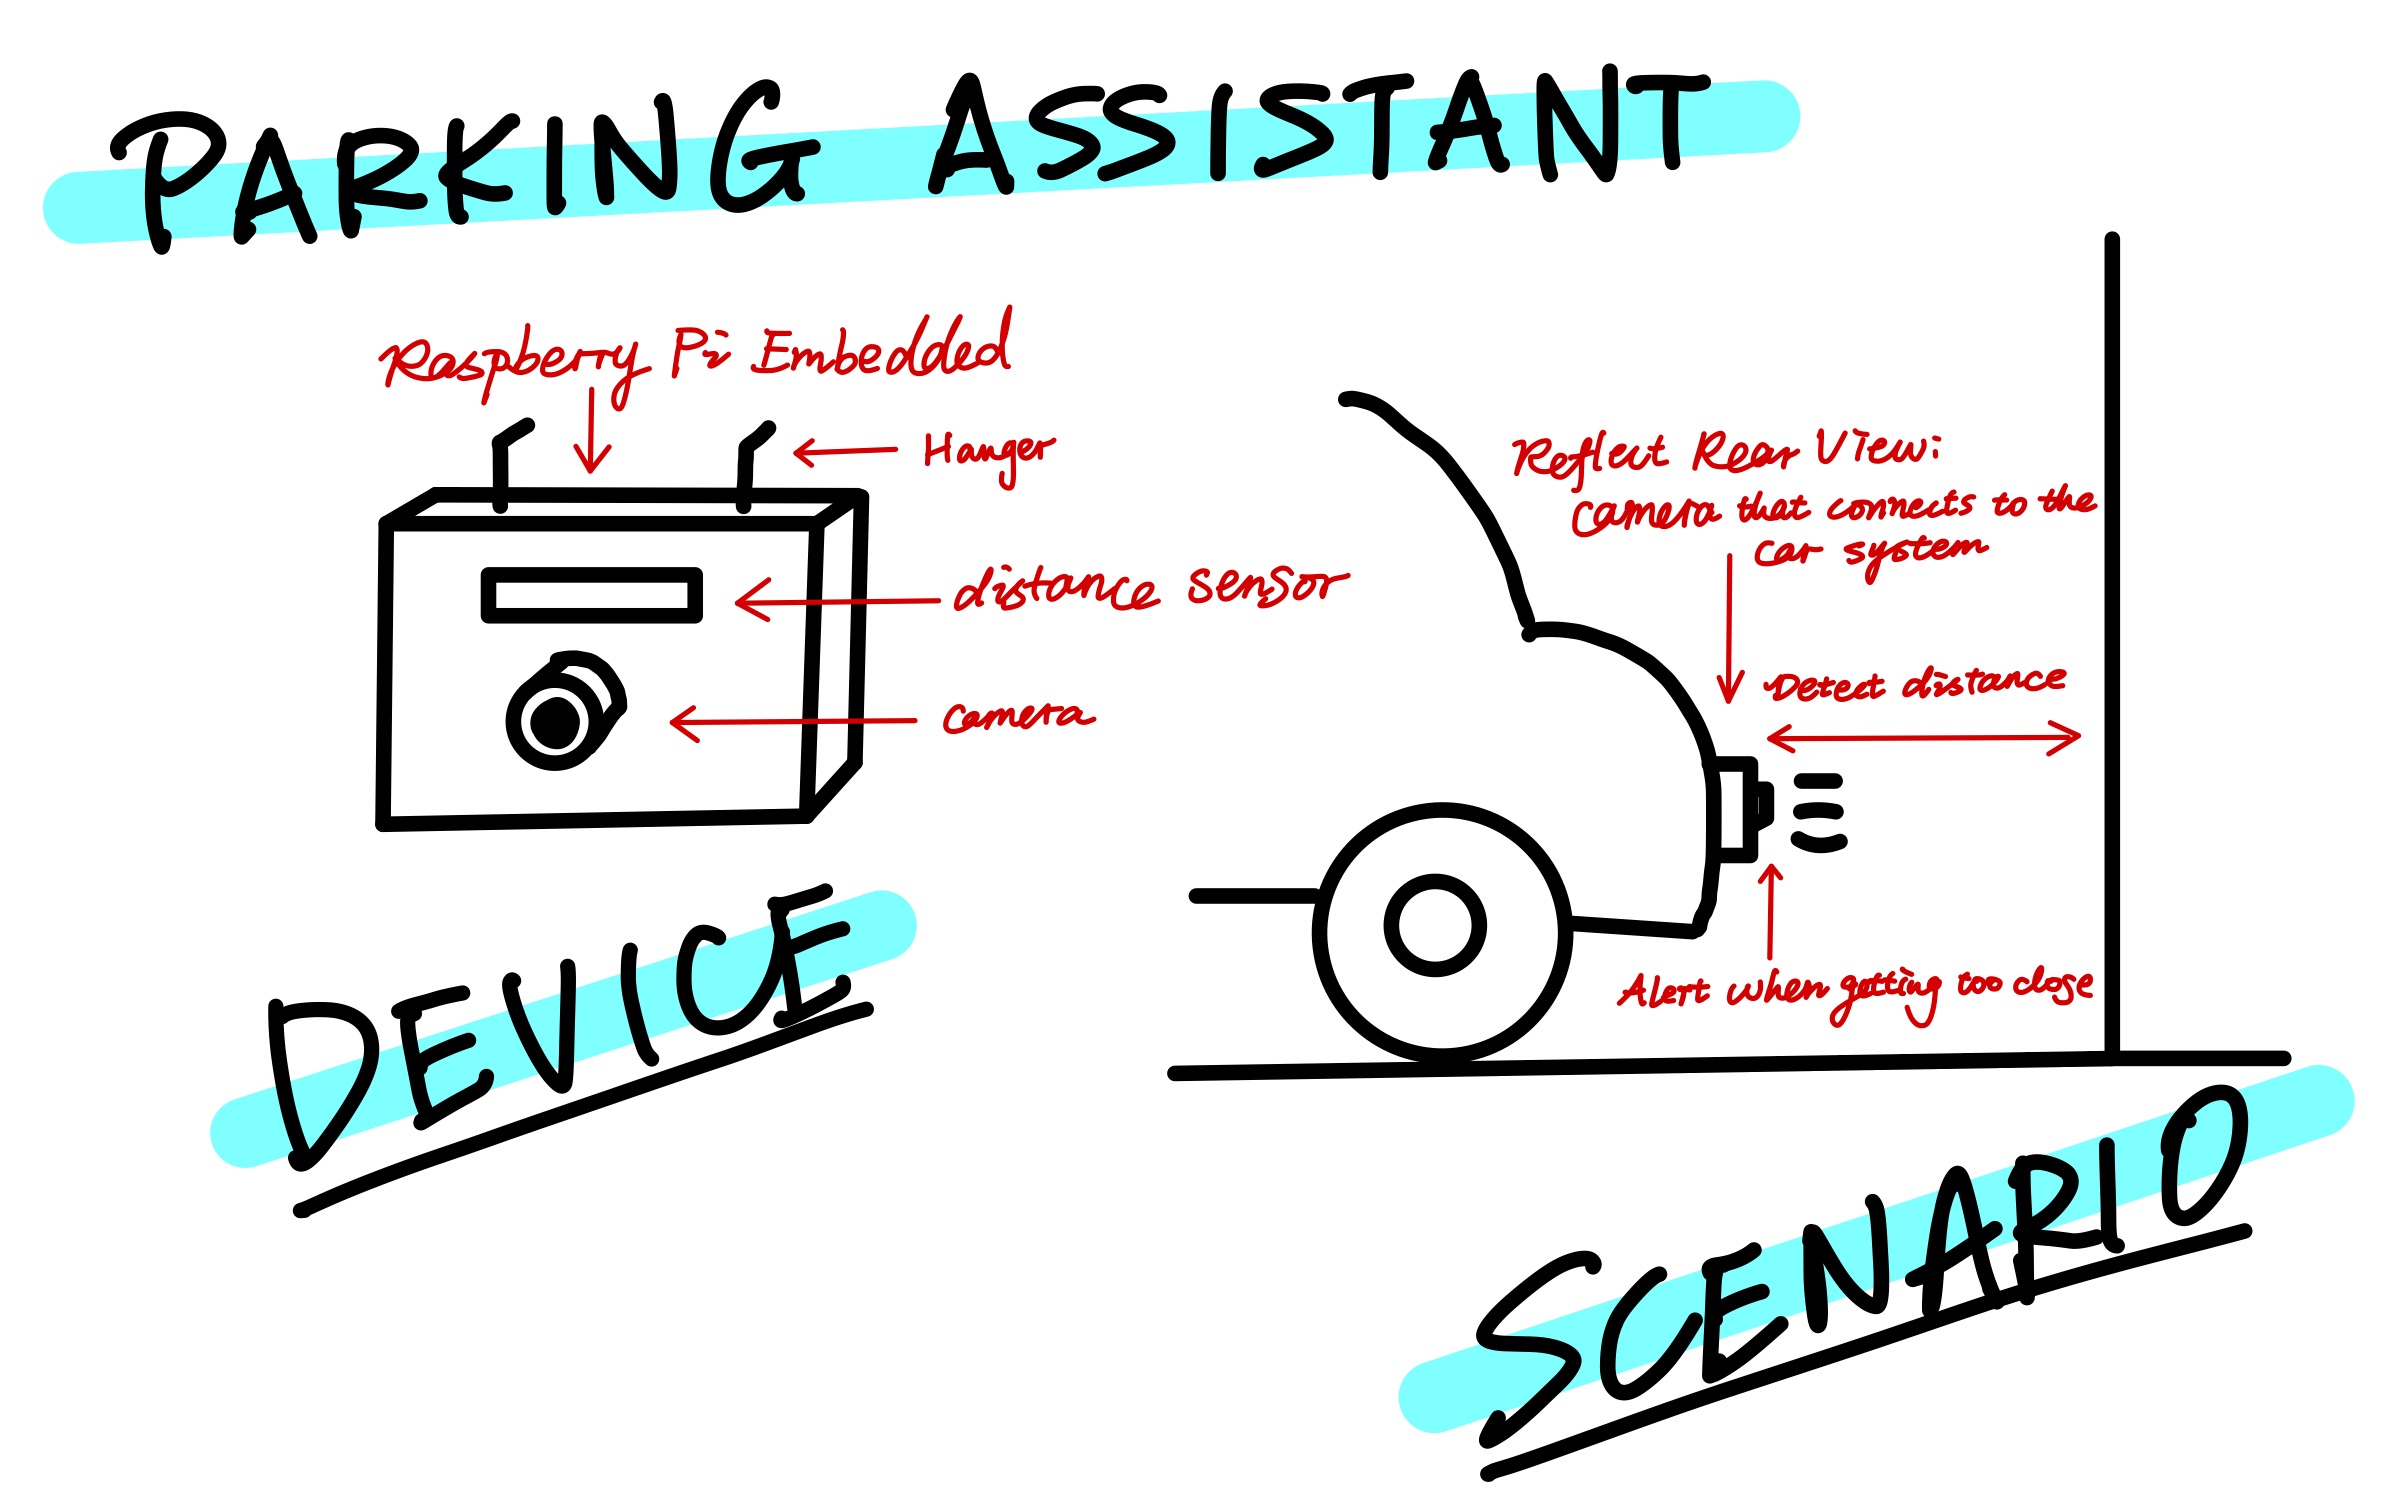 PARKING ASSISTANT
Raspberry Pi Embedded
Hanger
distance sensor
camera
DEVICE
Reflect Rear View:
camera that connects to the
car system
Detect distance
Alert when getting too close
SCENARIO